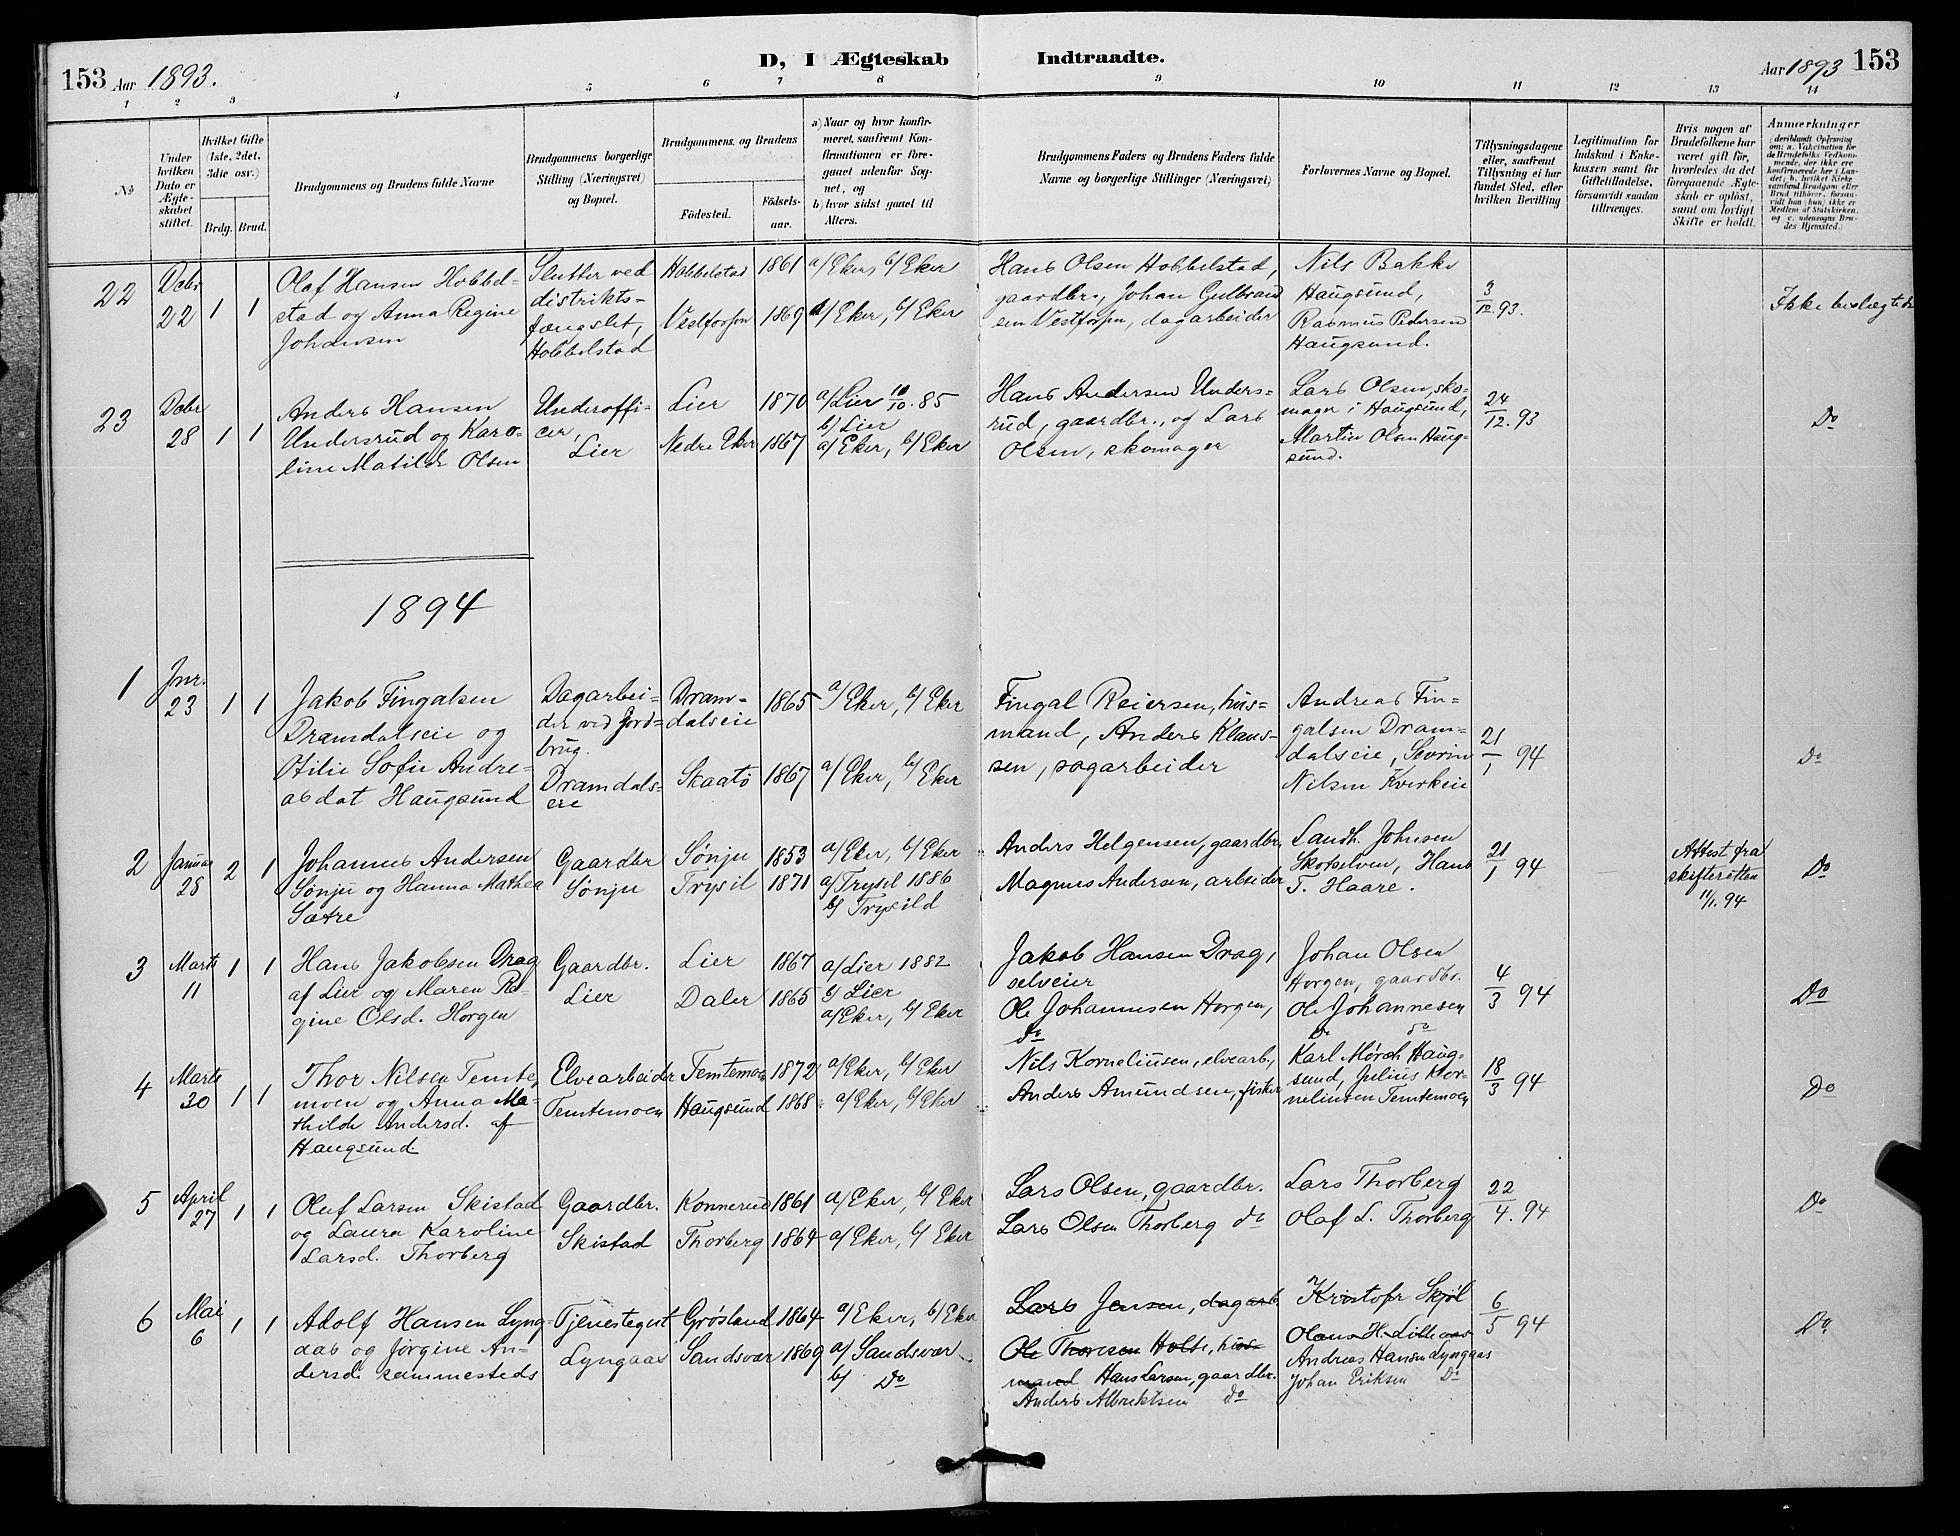 153 Aar 1893. D, I Ægteskab Indtraadte. Aar 1893 153
1 2 3 4 5 6 7 8 9 10 11 12 13 14
No
Under hvilken Dato er Ægteskabet stiftet.
Hvilket Gifte (1ste, 2det, 3die osv.)
Brdg. Brud.
Brudgommens og Brudens fulde Navne
Brudgommens borgerlige Stilling (Næringsvei) og Bopæl.
Brudgommens og Brudens
Fødested. Fødselsaar.
a) Naar og hvor konfirmeret, saafremt Konfirmationen er foregaaet udenfor Sognet, og
b) hvor sidst gaaet til Alters.
Brudgommens Faders og Brudens Faders fulde Navne og borgerlige Stillinger (Næringsvei)
Forlovernes Navne og Bopæl.
Tillysningsdagene eller, saafremt Tillysning ei har fundet Sted, efter hvilken Bevilling
Legitimation for Indskud i Enkekassen samt for Giftetilladelse, forsaavidt saadan tiltrænges.
Hvis nogen af Brudefolkene har været gift før, hvorledes da det foregaaende Ægteskab er opløst, samt om lovligt Skifte er holdt.
Anmerkninger
(deriblandt Oplysning om: a. Vakcination for de Brudefolks Vedkommende, der ikke ere konfirmerede her i Landet; b. hvilket Kirkesamfund Brudgom eller Brud tilhører, forsaavidt han (hun) ikke er Medlem af Statskirken, og c. udensogns Brudes Hjemsted.)
22
Decbr
22
1 1
Olaf Hansen Hobbel-
stad og Anna Regine
Johansen
Slutter ved
distrikts-
fængslet,
Hobbelstad
Hobbelstad 1861
Vestfossen 1869
a/ Eker, b/ Eker
a/ Eker, b/ Eker
Hans Olsen Hobbelstad,
gaardbr., Johan Gulbrand
sen Vestfossen, dagarbeider
Nils Bakke
Haugsund,
Rasmus Pedersen
Haugsund.
3/12. 93.
Ikke beslægtede
23
Decbr
28
1 1
Anders Hansen
Undersrud og Karo-
line Matilde Olsen
Underoffi-
cer,
Lier
Lier 1870
Nedre Eker 1867
a/ Lier 10/10. 85
b/ Lier
a/ Eker, b/ Eker
Hans Andersen Unders-
rud, gaardbr., og Lars
Olsen, skomager
Lars Olsen, sko-
mager i Haugsund,
Martin Olsen Haug-
sund.
24/12. 93
Do
1894
1
Jnr.
23
1 1
Jakob Fingalsen
Dramdalseie og
Otilie Sofie Andre-
asdat Haugsund
Dagarbei-
der ved jord-
brug.
Dramdals-
eie
Dram-
dalseie 1865
Skaatø 1867
a/ Eker, b/ Eker
a/ Eker, b/ Eker
Fingal Reiersen, hus-
mand, Anders Klaus-
sen, sagarbeider
Andreas Fin-
galsen Dram-
dalseie, Sevrin
Nilsen Kverkeie
21/1 94
Do
2
Januar
28
2 1
Johannes Andersen
Sønju og Hanna Mathea
Sætre
Gaardbr
Sønju
Sønju 1853
Trysil 1871
a/ Eker, b/ Eker
a/ Trysil 1886
b/ Trysild
Anders Helgensen, gaardbr,
Magnus Andersen, arbeider
Landh. Johnsen
Skotselven, Hans
T. Haare.
21/1 94
Attest fra
skifteretten
11/1. 94
Do
3
Marts
11
1 1
Hans Jakobsen Drag
af Lier og Maren Re-
gine Olsd. Horgen
Gaardbr.
Lier
Lier 1867
Daler 1865
a/ Lier 1882
b/ Lier
a/ Eker, b/ Eker
Jakob Hansen Drag,
selveier
Ole Johannesen Horgen,
do
Johan Olsen
Horgen, gaardbr.
Ole Johannesen
do do
4/3 94
Do
4
Marts
30
1 1
Thor Nilsen Temte,
moen og Anna Ma-
thilde Andersd. af
Haugsund
Elvearbeider
Temtemoen
Temtemoen 1872
Haugsund 1868
a/ Eker, b/ Eker
a/ Eker, b/ Eker
Nils Korneliusen, elvearb.,
Anders Amundsen, fisker
Karl Mørch Haug-
sund, Julius Kor-
neliusen Temtemoen
18/3 94
Do
5
April
27
1 1
Oluf Larsen Skistad
og Laura Karoline
Larsd. Thorberg
Gaardbr.
Skistad
Konnerud 1861
Thorberg 1864
a/ Eker, b/ Eker
a/ Eker, b/ Eker
Lars Olsen, gaardbr.
Lars Olsen Thorberg do
Lars Thorberg
Olaf L. Thorberg
22/4. 94
Do
6
Mai
6
1 1
Adolf Hansen Lyng-
aas og Jørgine An-
dersd. sammesteds
Tjenestegut
Lyngaas
Grøsland 1864
Sandsvær 1869
a/ Eker, b/ Eker
a/ Sandsvær
b/ Do
Lars Jensen, dagarb.
Ole Thoresen Holte, hus-
mand Hans Larsen, gaardbr.
Anders Albrektsen do
Kristofr Skjøl
Olaus H. Lilleaas
Andreas Hansen Lyngaas
Johan Eriksen Do
6/5 94
Do